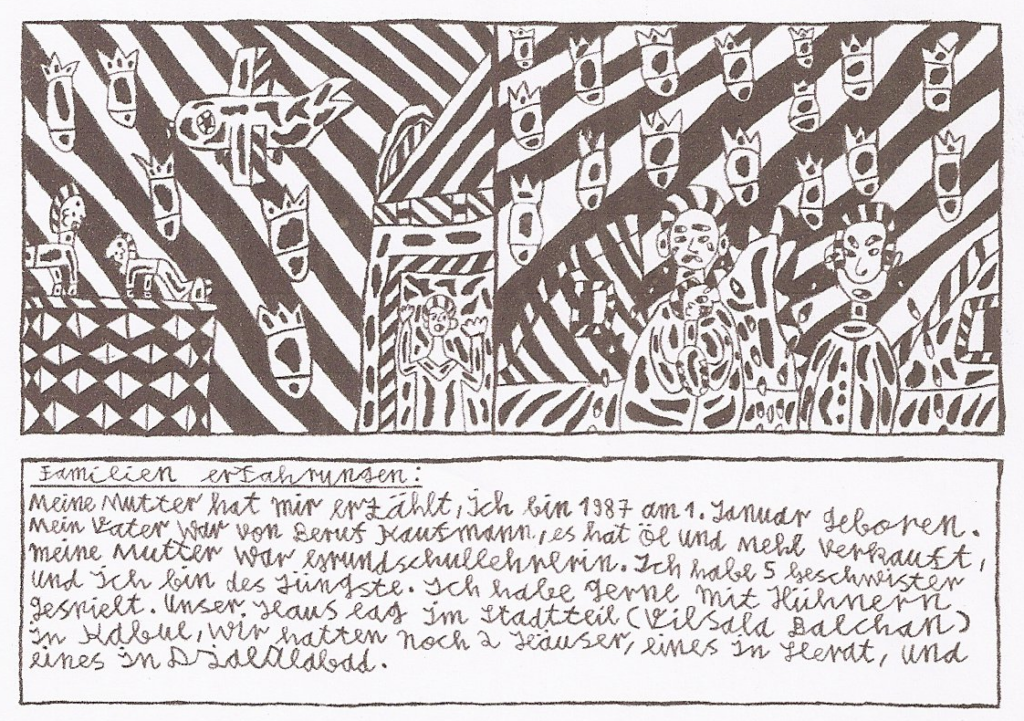 Familien erfahrungen:
Meine Mutter hat mir erzählt, ich bin 1987 am 1. Januar geboren.
Mein Vater war von Beruf Kaufmann, es hat Öl und Mehl verkauft,
meine Mutter war Grundschullehrerin. Ich habe 5 beschwister
und ich bin des Jüngste. Ich habe gerne mit Hühnern
gespielt. Unser Haus lag im Stadtteil (Vilsala Balchan)
in Kabul, wir hatten noch 2 Häuser, eines in Herat, und
eines in Djalalabad.